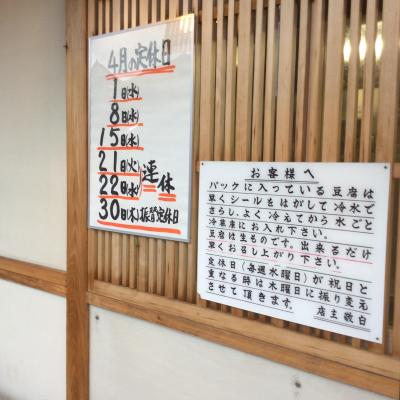 4月の定休日
1日(水)
8日(水)
15日(水)
21日(火)
22日(水)
連休
30日(木)振替定休日
お客様へ
パックに入っている豆腐は
早くシールをはがして冷水で
さらし、よく冷えてから水ごと
冷蔵庫にお入れ下さい。
豆腐は生ものです。出来るだけ
早くお召し上がり下さい。
定休日(毎週水曜日)が祝日と
重なる時は木曜日に振り変え
させて頂きます。
店主敬白